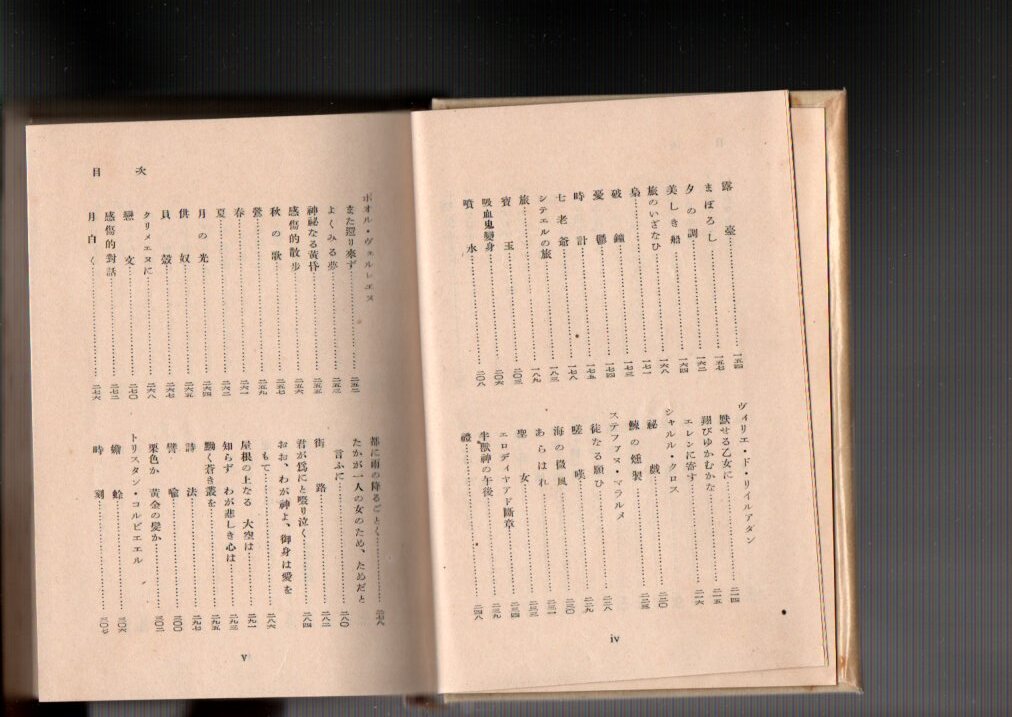 露臺……一五四
まぼろし……一五七
夕の調……一六二
美しき船……一六四
旅のいざなひ……一六八
梟……一七一
破鐘……一七三
憂鬱……一七四
時計……一七五
七老爺……一七八
シテエルの旅……一八三
旅……一八九
寶玉……二〇三
吸血鬼變身……二〇六
噴水……二〇八
ヴィリエ・ド・リイルアダン
獸せる乙女に……二一四
翔びゆかむかな……二一五
エレンに寄す……二一六
シャルル・クロス
祕戲……二二〇
鰊の燻製……二二五
ステファヌ・マラルメ
徒なる願ひ……二二八
嗟嘆……二二九
海の微風……二三〇
あらはれ……二三一
聖女……二三三
エロディヤアド斷章……二三四
半獸神の午後……二三九
禮……二四八
iv
目次
ポオル・ヴェルレエヌ
また還り來ず……二五二
よくみる夢……二五三
神祕なる黄昏……二五五
感傷的散步……二五六
秋の歌……二五七
鶯……二五九
春……二六一
夏……二六二
月の光……二六四
供奴……二六六
貝殼……二六七
クリメエヌに……二六八
戀文……二七〇
感傷的對話……二七二
月白く……二七六
都に雨の降るごとく……二七八
たかが一人の女のため、ためだと
言ふに……二八〇
街路……二八二
君が爲にと啜り泣く……二八四
おお、わが神よ、御身は愛を
もて……二八六
屋根の上なる 大空は……二九一
知らず わが悲しき心は……二九三
黝く蒼き叢を……二九五
詩法……二九七
譬喩……三〇〇
栗色か 黄金の髮か……三〇二
トリスタン・コルビエエル
蟾蜍……三〇六
時刻
v